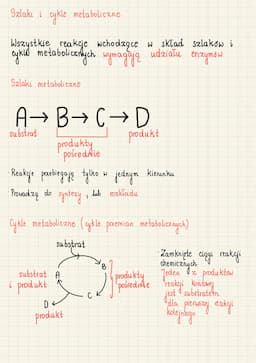 Szlaki i cykle metaboliczne
Wszystkie reakcje wchodzące w skład szlaków i
cykli metabolicznych wymagają udziału enzymów.
Szlaki metaboliczne
A → B → C → D
substrat
produkt
produkty
pośrednie
Reakcje przebiegają tylko w jednym kierunku
Prowadzą do syntezy, lub rozkładu
Cykle metaboliczne (cykle przemian metabolicznych)
substrat
substrat
i produkt
A
B
C
D
produkty
pośrednie
produkt
· Zamknięte ciągi reakcji
chemicznych
Jeden z produktów
reakcji końcowej
jest substratem
dla pierwszej reakcji
kolejnego